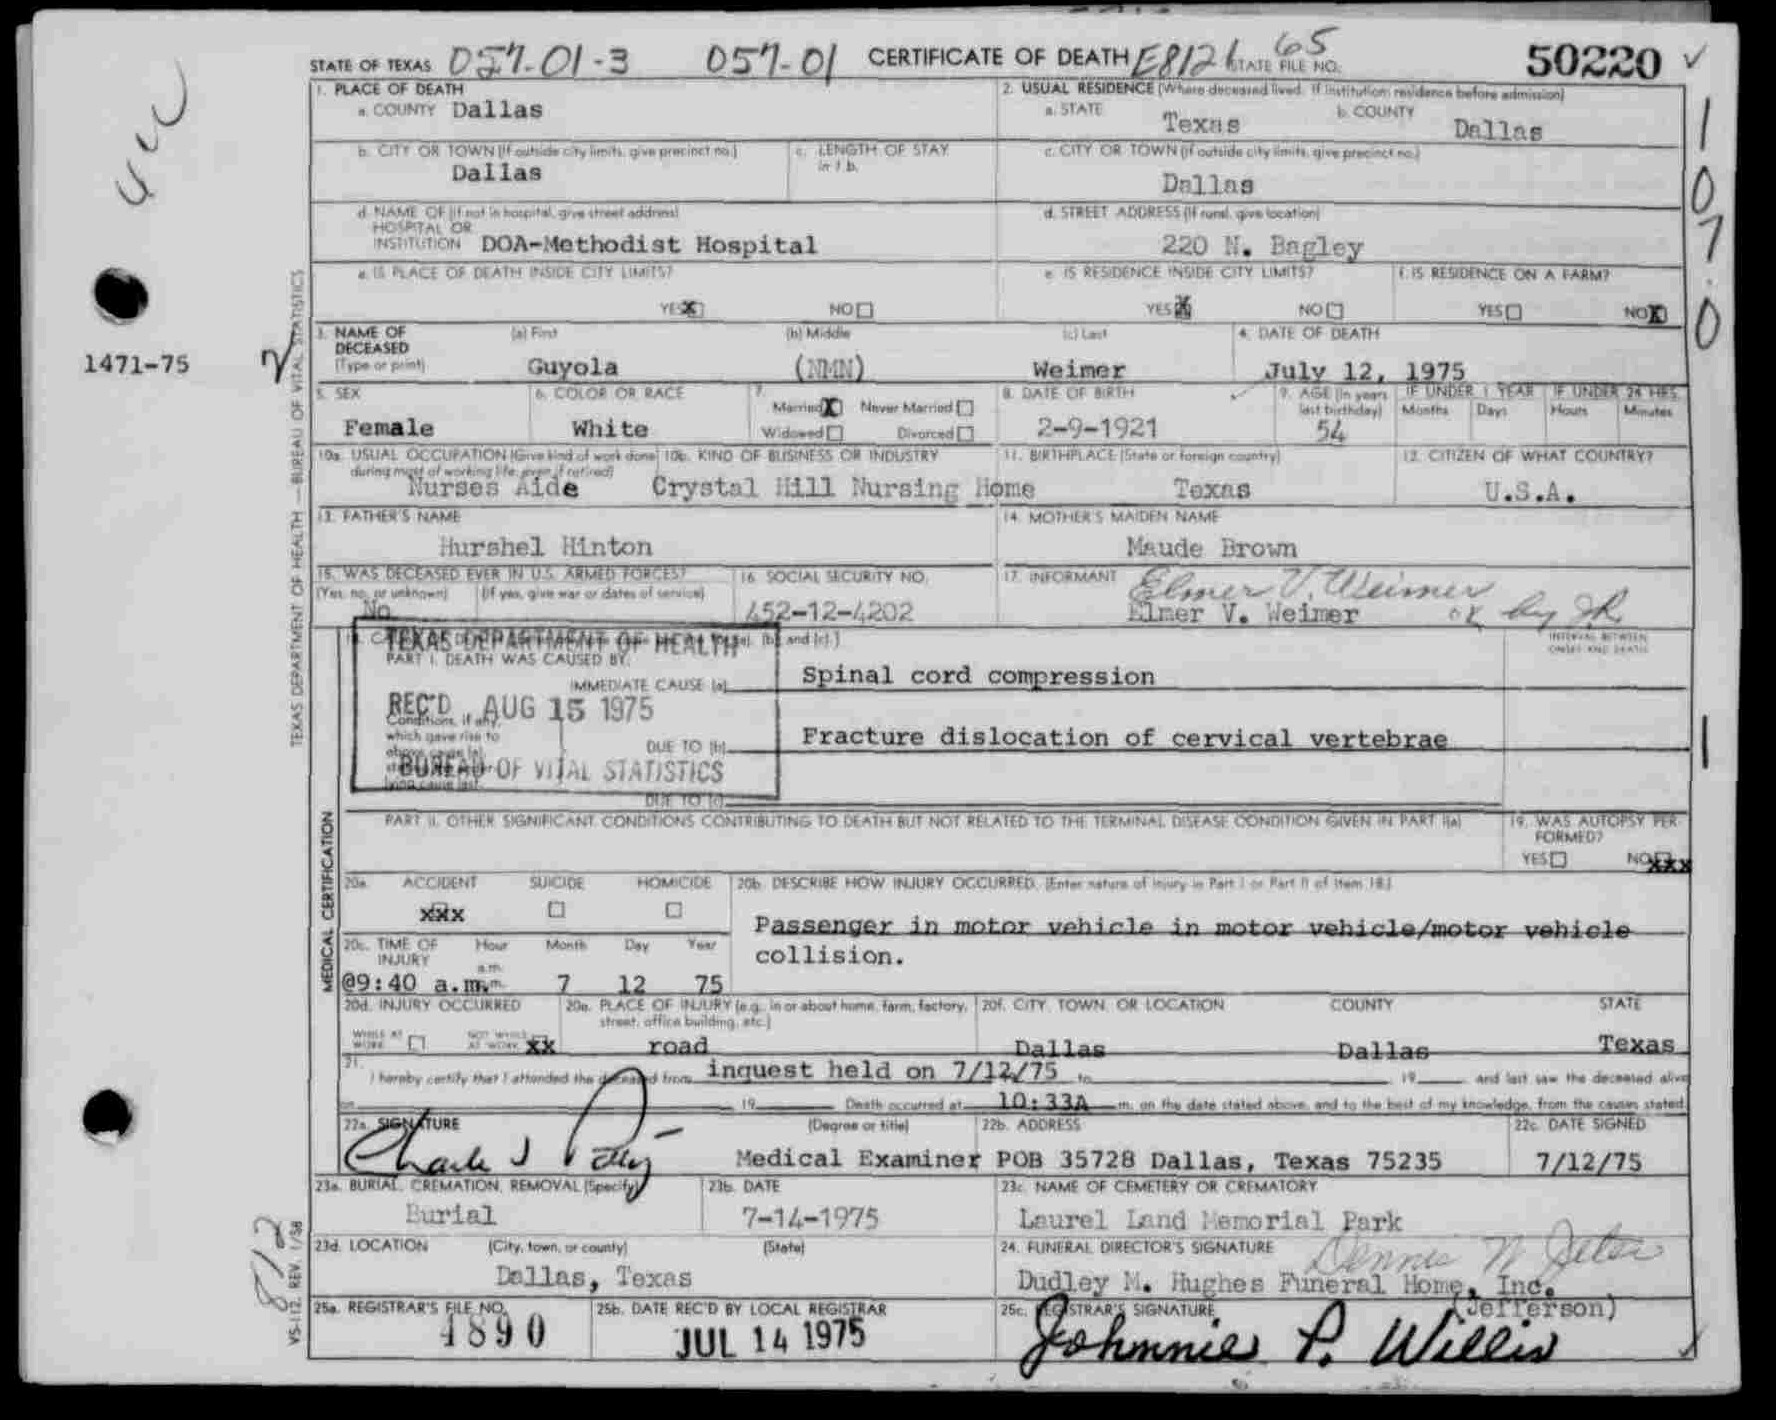 STATE OF TEXAS 057-01-3 057-01 CERTIFICATE OF DEATH E8121 65 STATE FILE NO. 50220 ✓
1. PLACE OF DEATH
a. COUNTY Dallas
2. USUAL RESIDENCE (Where deceased lived. If institution: residence before admission)
a. STATE Texas b. COUNTY Dallas
b. CITY OR TOWN (If outside city limits, give precinct no.) Dallas
c. LENGTH OF STAY in 1 b.
c. CITY OR TOWN (If outside city limits, give precinct no.) Dallas
d. NAME OF (If not in hospital, give street address) HOSPITAL OR INSTITUTION DOA-Methodist Hospital
d. STREET ADDRESS (If rural, give location) 220 N. Bagley
e. IS PLACE OF DEATH INSIDE CITY LIMITS?
YES X NO
e. IS RESIDENCE INSIDE CITY LIMITS?
YES X NO
f. IS RESIDENCE ON A FARM?
YES NO X
1070
1471-75
3. NAME OF DECEASED (Type or print)
(a) First Guyola
(b) Middle (NMN)
(c) Last Weimer
4. DATE OF DEATH July 12, 1975
5. SEX Female
6. COLOR OR RACE White
7. Married X Never Married
Widowed Divorced
8. DATE OF BIRTH 2-9-1921
9. AGE (In years last birthday) 54
IF UNDER 1 YEAR Months Days
IF UNDER 24 HRS. Hours Minutes
10a. USUAL OCCUPATION (Give kind of work done during most of working life, even if retired) Nurses Aide
10b. KIND OF BUSINESS OR INDUSTRY Crystal Hill Nursing Home
11. BIRTHPLACE (State or foreign country) Texas
12. CITIZEN OF WHAT COUNTRY? U.S.A.
13. FATHER'S NAME Hurshel Hinton
14. MOTHER'S MAIDEN NAME Maude Brown
15. WAS DECEASED EVER IN U.S. ARMED FORCES?
(Yes, no, or unknown) No (If yes, give war or dates of service)
16. SOCIAL SECURITY NO. 452-12-4202
17. INFORMANT Elmer V. Weimer
Elmer V. Weimer ok by JR
TEXAS DEPARTMENT OF HEALTH
(b) and (c).)
INTERVAL BETWEEN ONSET AND DEATH
PART I. DEATH WAS CAUSED BY:
IMMEDIATE CAUSE (a) Spinal cord compression
REC'D AUG 15 1975
Conditions, if any, which gave rise to above cause (a)
DUE TO (b) Fracture dislocation of cervical vertebrae
BUREAU OF VITAL STATISTICS
lying cause last.
DUE TO (c)
1
PART II. OTHER SIGNIFICANT CONDITIONS CONTRIBUTING TO DEATH BUT NOT RELATED TO THE TERMINAL DISEASE CONDITION GIVEN IN PART I(a)
19. WAS AUTOPSY PERFORMED?
YES NO xxx
20a. ACCIDENT xxx SUICIDE HOMICIDE
20b. DESCRIBE HOW INJURY OCCURRED. (Enter nature of injury in Part I or Part II of item 18.)
Passenger in motor vehicle in motor vehicle/motor vehicle
collision.
20c. TIME OF INJURY Hour Month Day Year
@9:40 a.m. 7 12 75
20d. INJURY OCCURRED
WHILE AT WORK NOT WHILE AT WORK xx
20e. PLACE OF INJURY (e.g., in or about home, farm, factory, street, office building, etc.) road
20f. CITY, TOWN, OR LOCATION Dallas COUNTY Dallas STATE Texas
21. I hereby certify that I attended the deceased from inquest held on 7/12/75 to 19 and last saw the deceased alive
on 19 Death occurred at 10:33A m. on the date stated above, and to the best of my knowledge, from the causes stated.
22a. SIGNATURE
(Degree or title) Medical Examiner
22b. ADDRESS POB 35728 Dallas, Texas 75235
22c. DATE SIGNED 7/12/75
23a. BURIAL, CREMATION, REMOVAL (Specify) Burial
23b. DATE 7-14-1975
23c. NAME OF CEMETERY OR CREMATORY Laurel Land Memorial Park
23d. LOCATION (City, town, or county) (State) Dallas, Texas
24. FUNERAL DIRECTOR'S SIGNATURE
Dudley M. Hughes Funeral Home, Inc.
(Jefferson)
25a. REGISTRAR'S FILE NO. 4890
25b. DATE REC'D BY LOCAL REGISTRAR JUL 14 1975
25c. REGISTRAR'S SIGNATURE Johnnie P. Willis
TEXAS DEPARTMENT OF HEALTH — BUREAU OF VITAL STATISTICS
MEDICAL CERTIFICATION
VS-112, REV. 1/58
8/2